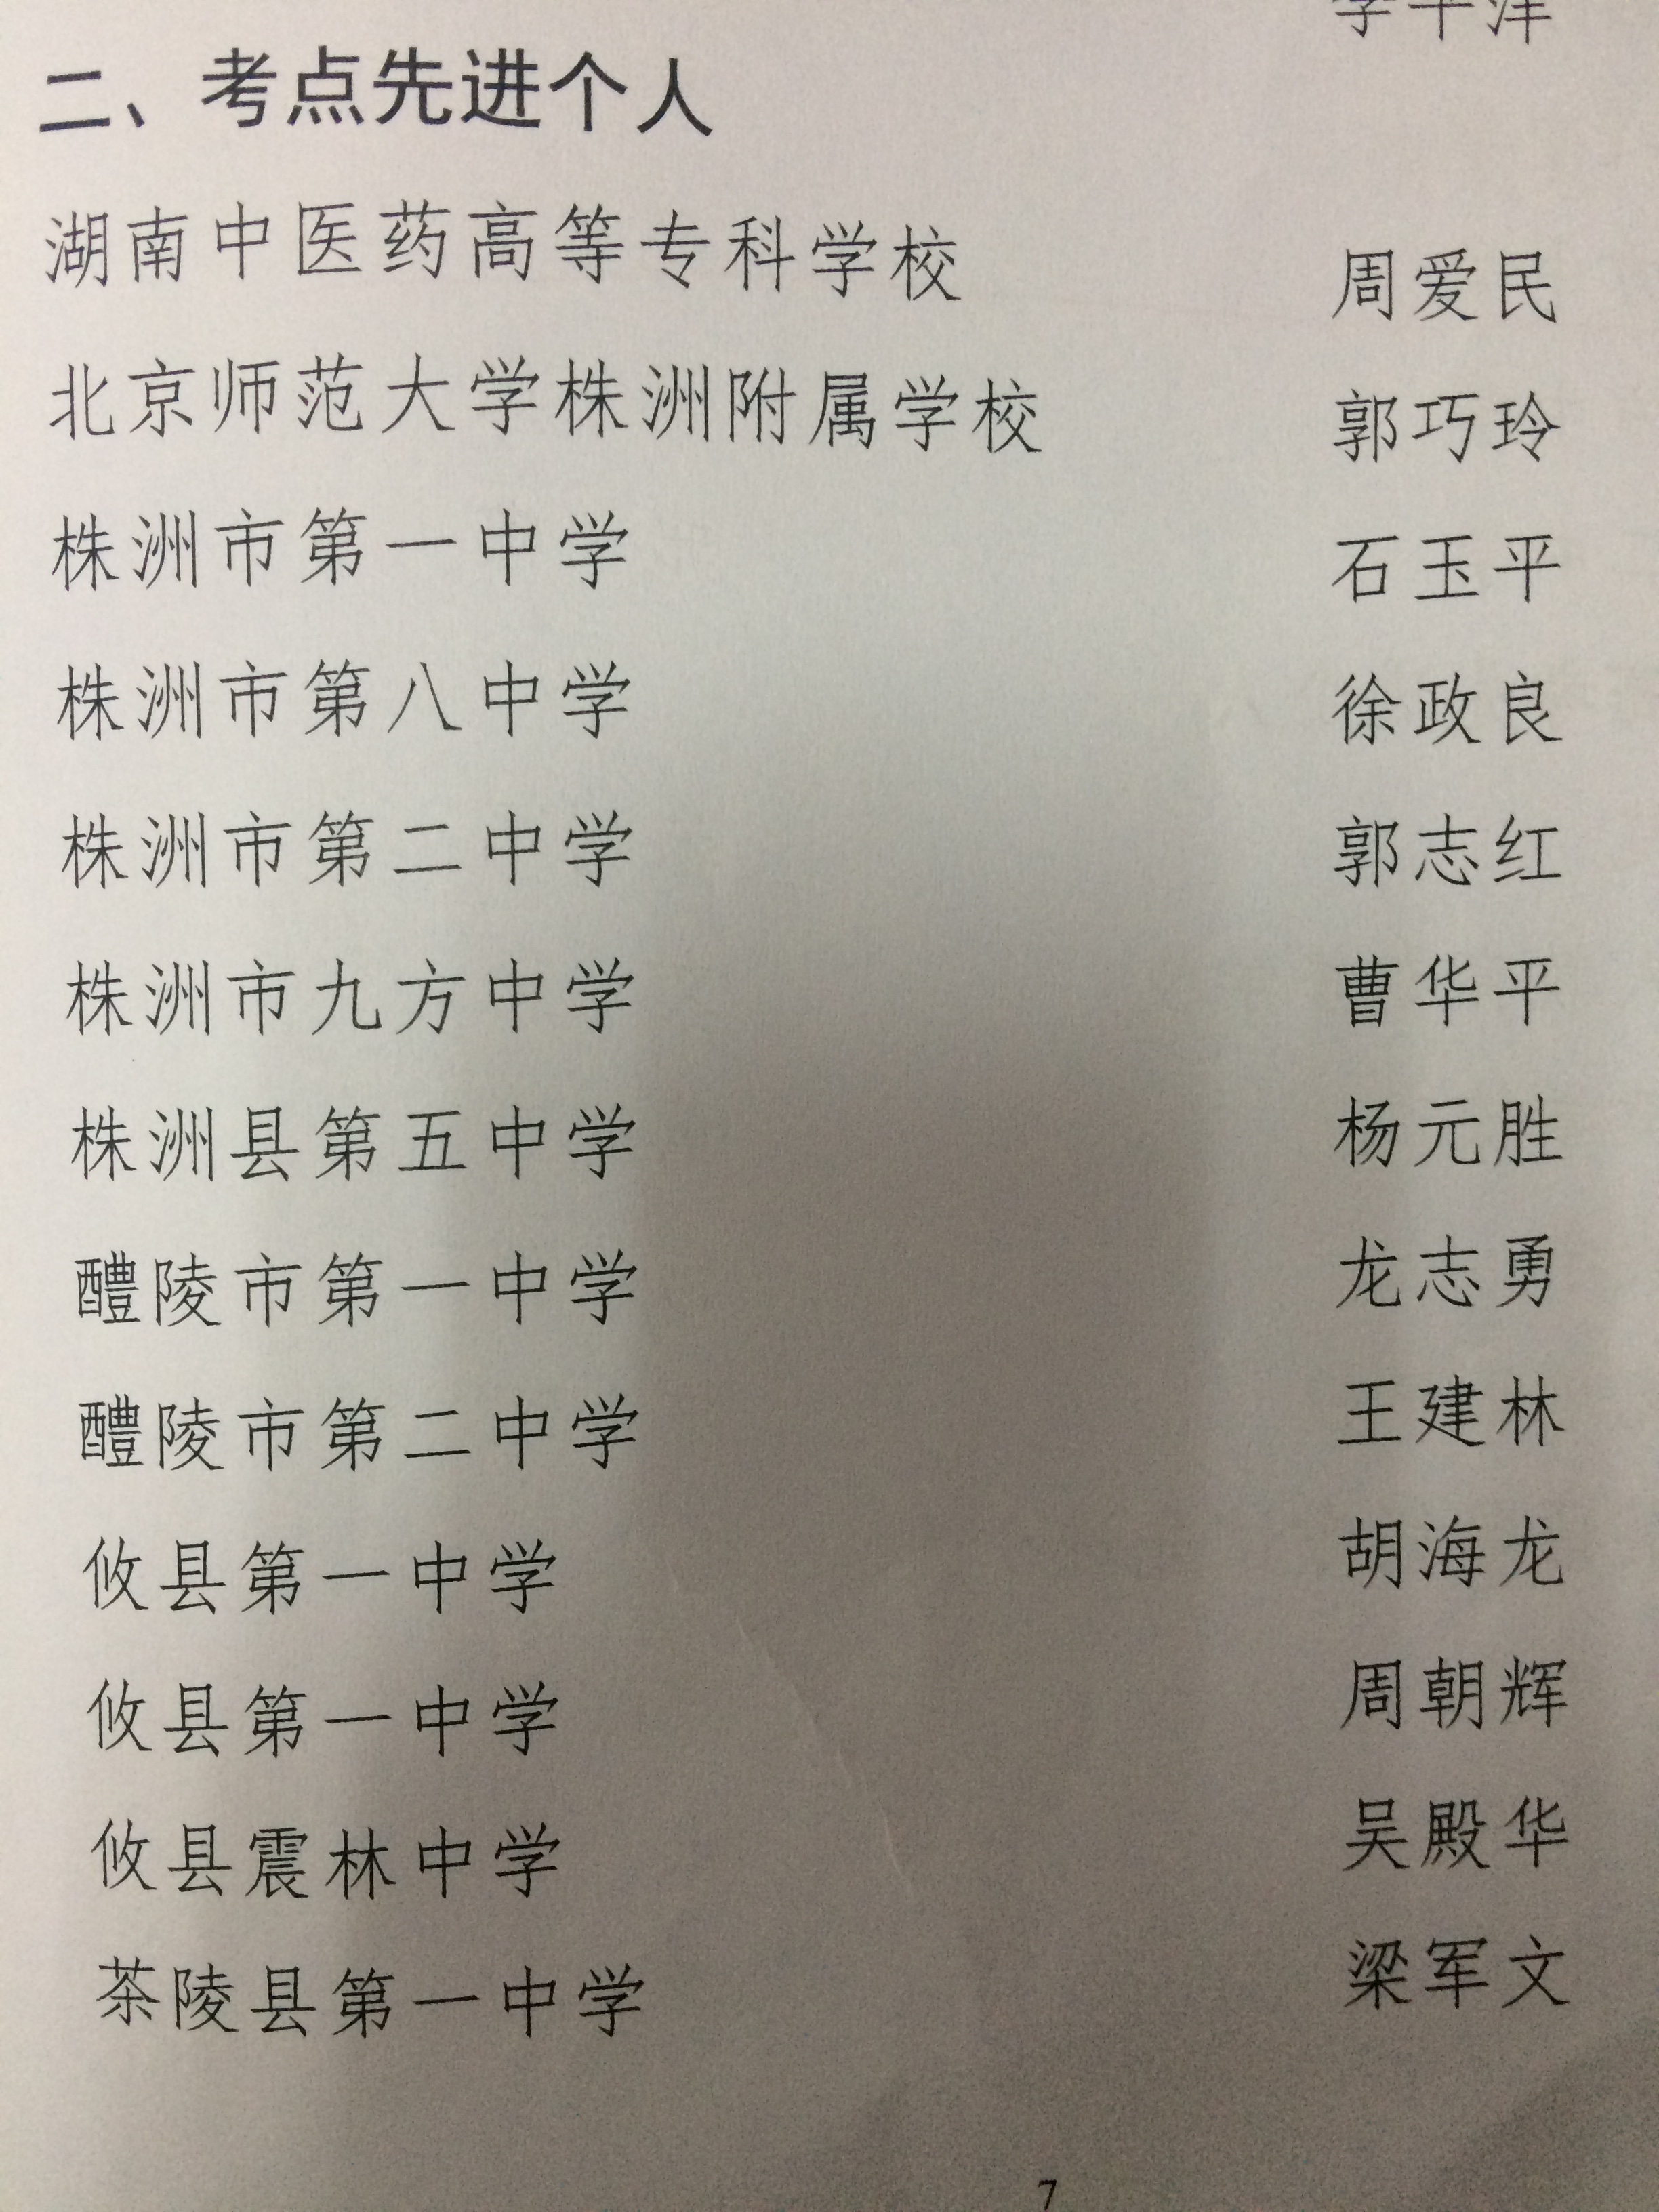 二、考点先进个人
湖南中医药高等专科学校 周爱民
北京师范大学株洲附属学校 郭巧玲
株洲市第一中学 石玉平
株洲市第八中学 徐政良
株洲市第二中学 郭志红
株洲市九方中学 曹华平
株洲县第五中学 杨元胜
醴陵市第一中学 龙志勇
醴陵市第二中学 王建林
攸县第一中学 胡海龙
攸县第一中学 周朝辉
攸县震林中学 吴殿华
茶陵县第一中学 梁军文
7